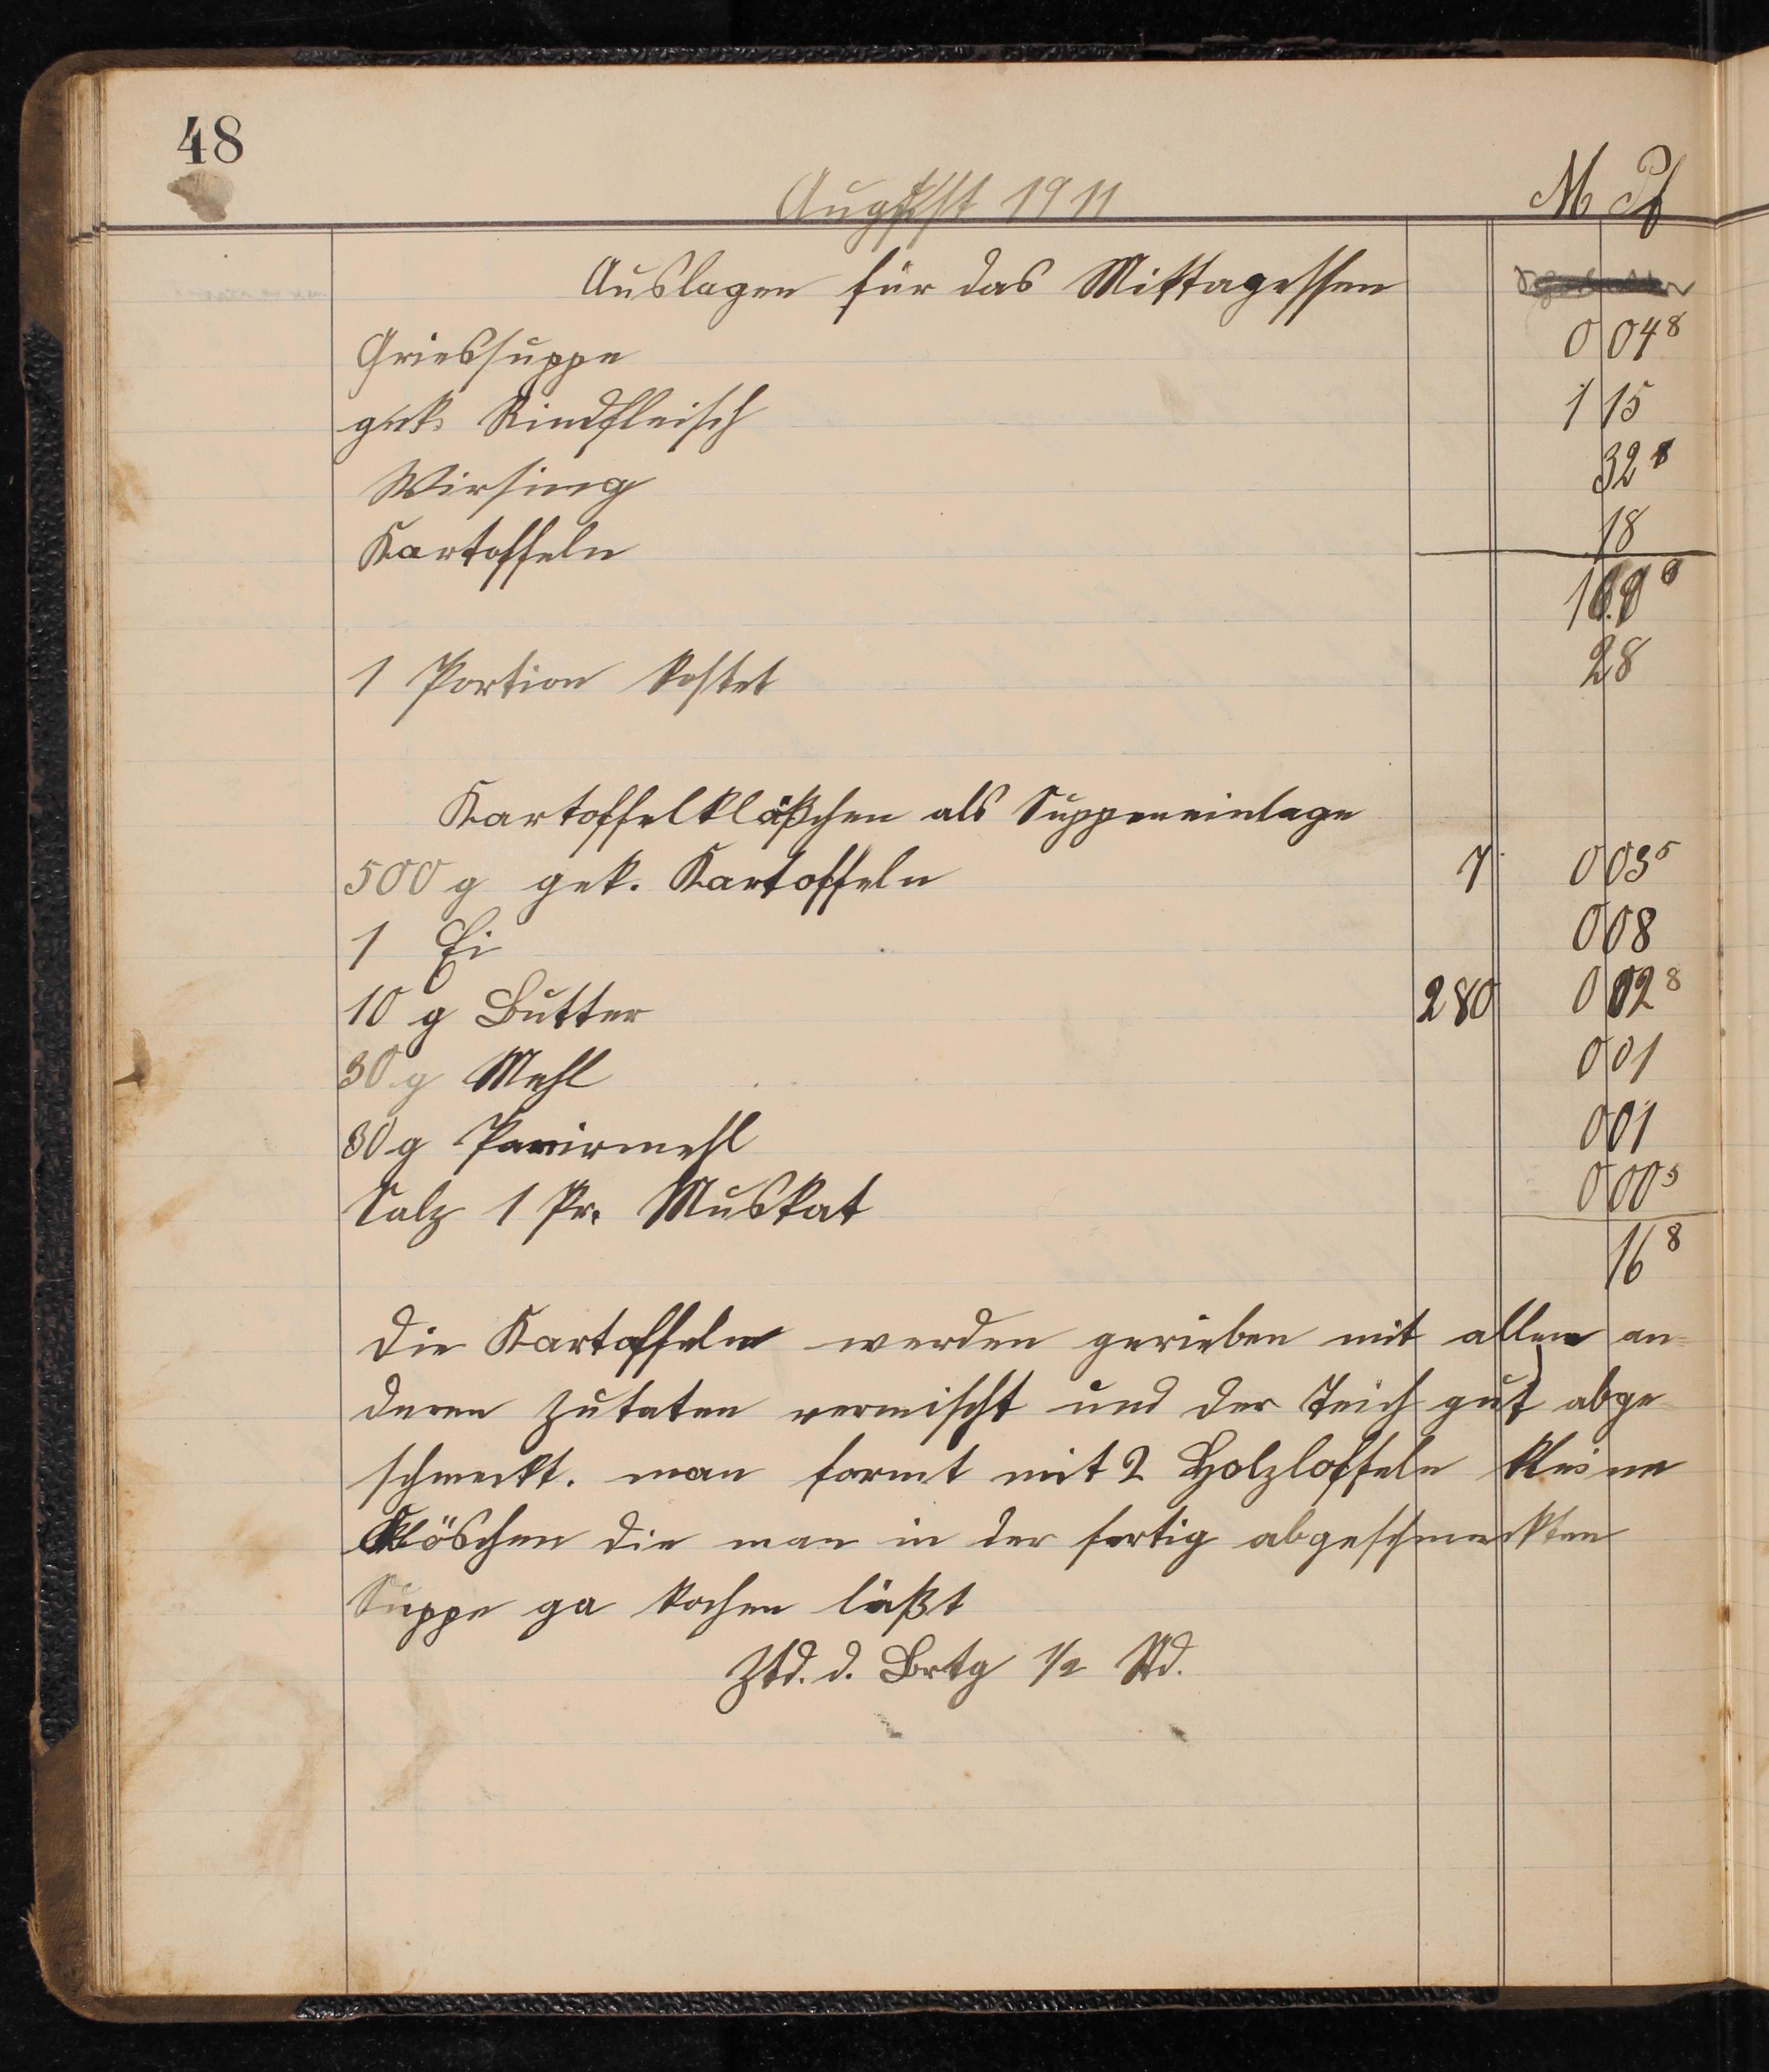 48
August 1911 M Pf
Auslagen für das Mittagessen
Griessuppe 0 04⁸
gek. Rindfleisch 1 15
Wirsing 32
Kartoffeln 18
1
1 Portion kostet 28
Kartoffelklößchen als Suppeneinlage
500 g gek. Kartoffeln 7 0 03⁵
1 Ei 0 08
10 g Butter 280 0 02⁸
30 g Mehl 0 01
30 g Panirmehl 0 01
Salz 1 Pr. Muskat 0 00⁵
16⁸
die Kartoffeln werden gerieben mit allen an=
deren zutaten vermischt und der Teich gut abge
schmeckt. man formt mit 2 Holzloffeln kleine
Klöschen die man in der fertig abgeschmeckten
Suppe ga kochen läßt
Ztd. d. Brtg 1/2 Std.